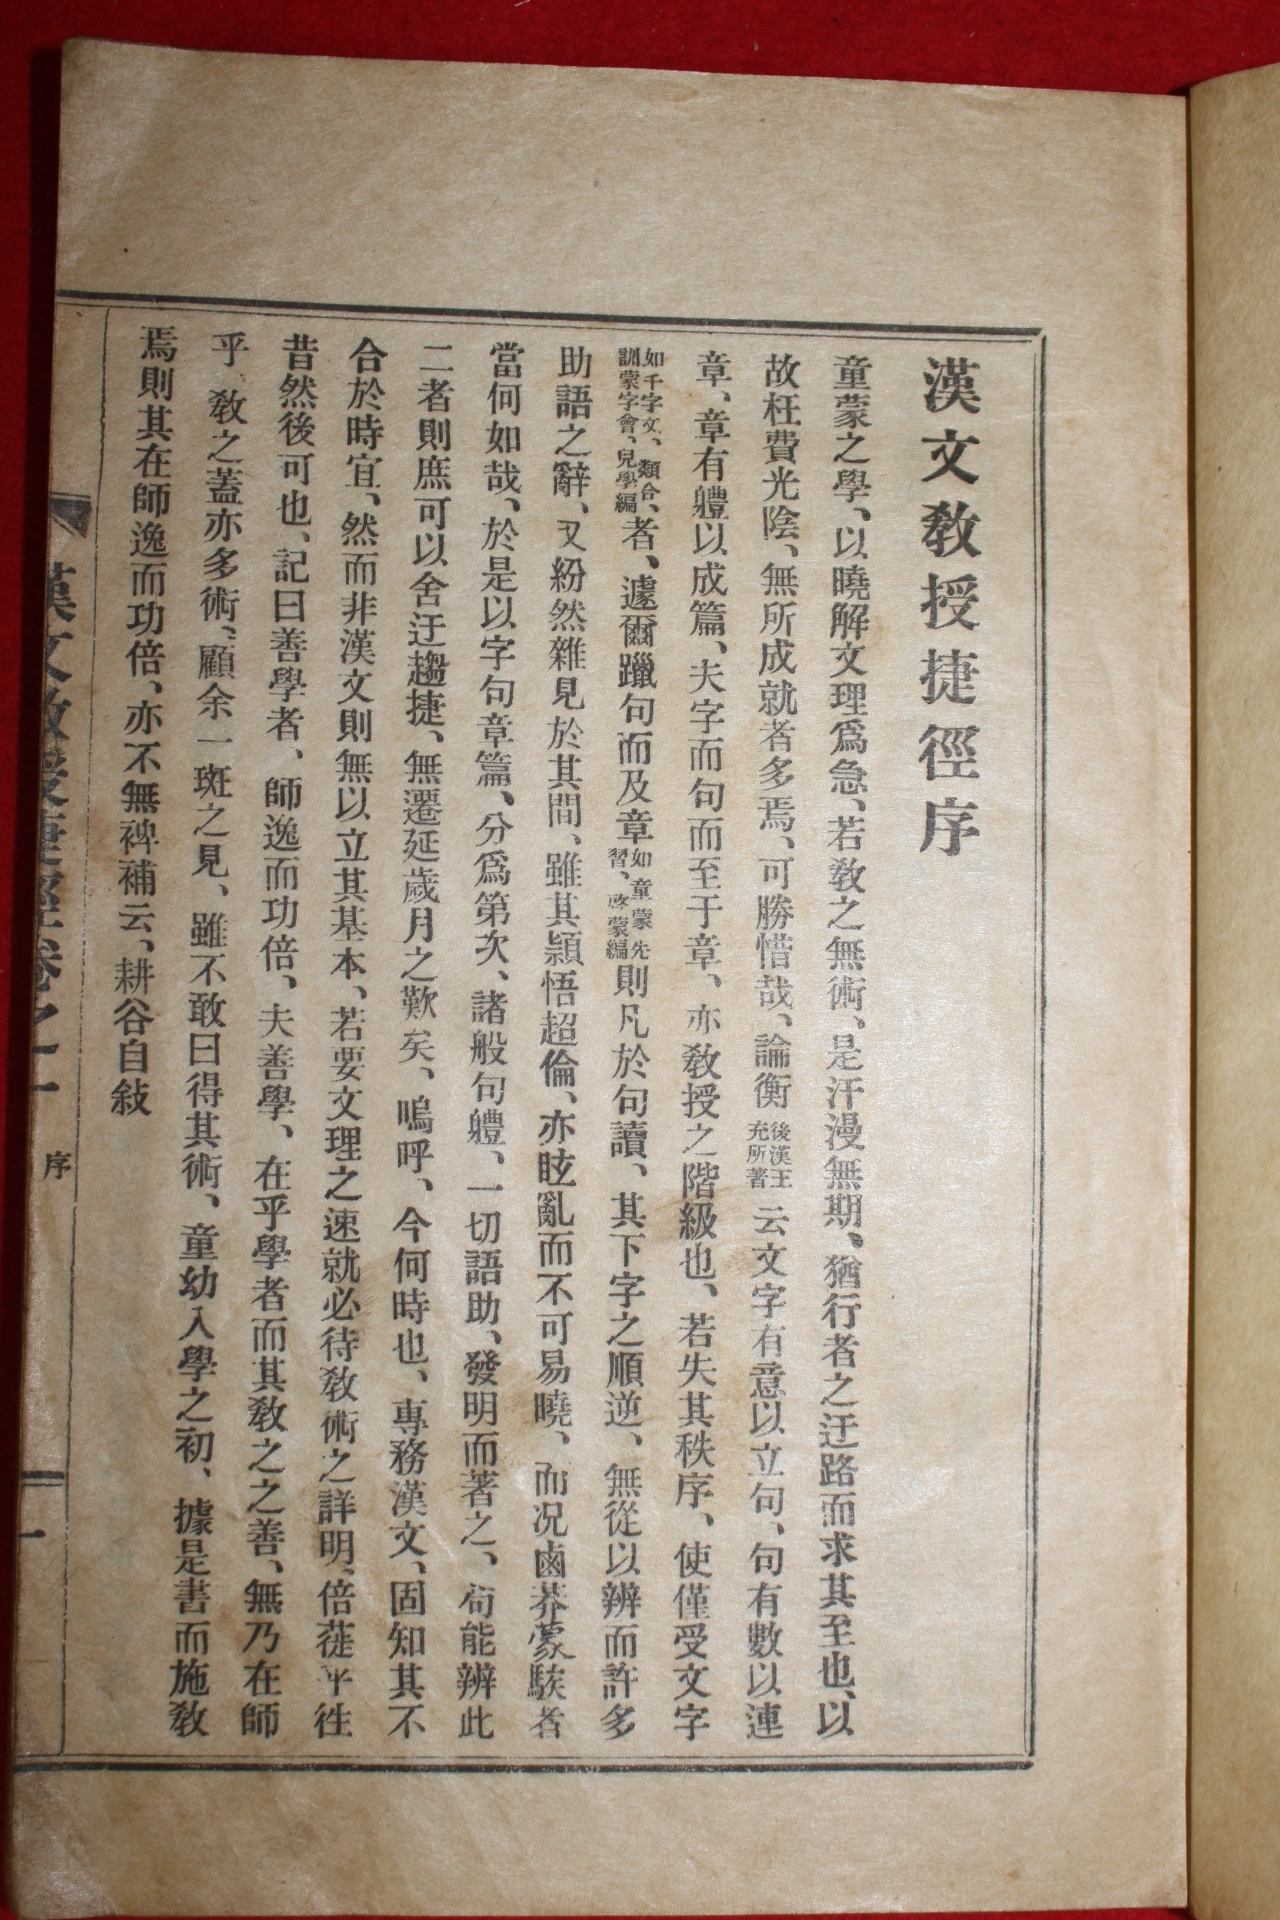 漢文敎授捷徑序
童蒙之學、以曉解文理爲急、若敎之無術、是汗漫無期、猶行者之迂路而求其至也、以
故枉費光陰、無所成就者多焉、可勝惜哉、論衡後漢王充所著云文字有意以立句、句有數以連
章、章有軆以成篇、夫字而句而至于章、亦敎授之階級也、若失其秩序、使僅受文字
如千字文、類合、訓蒙字會、兒學編者、遽爾躐句而及章如童蒙先習、啓蒙編則凡於句讀、其下字之順逆、無從以辨而許多
助語之辭、又紛然雜見於其間、雖其穎悟超倫、亦眩亂而不可易曉、而况鹵莽蒙騃者
當何如哉、於是以字句章篇、分爲第次、諸般句軆、一切語助、發明而著之、苟能辨此
二者則庶可以舍迂趨捷、無遷延歲月之歎矣、嗚呼、今何時也、專務漢文、固知其不
合於時宜、然而非漢文則無以立其基本、若要文理之速就必待敎術之詳明、倍蓰乎徃
昔然後可也、記曰善學者、師逸而功倍、夫善學、在乎學者而其敎之之善、無乃在師
乎、敎之蓋亦多術、顧余一斑之見、雖不敢曰得其術、童幼入學之初、據是書而施敎
焉則其在師逸而功倍、亦不無裨補云、耕谷自敍
漢文敎授捷徑卷之一 序 一